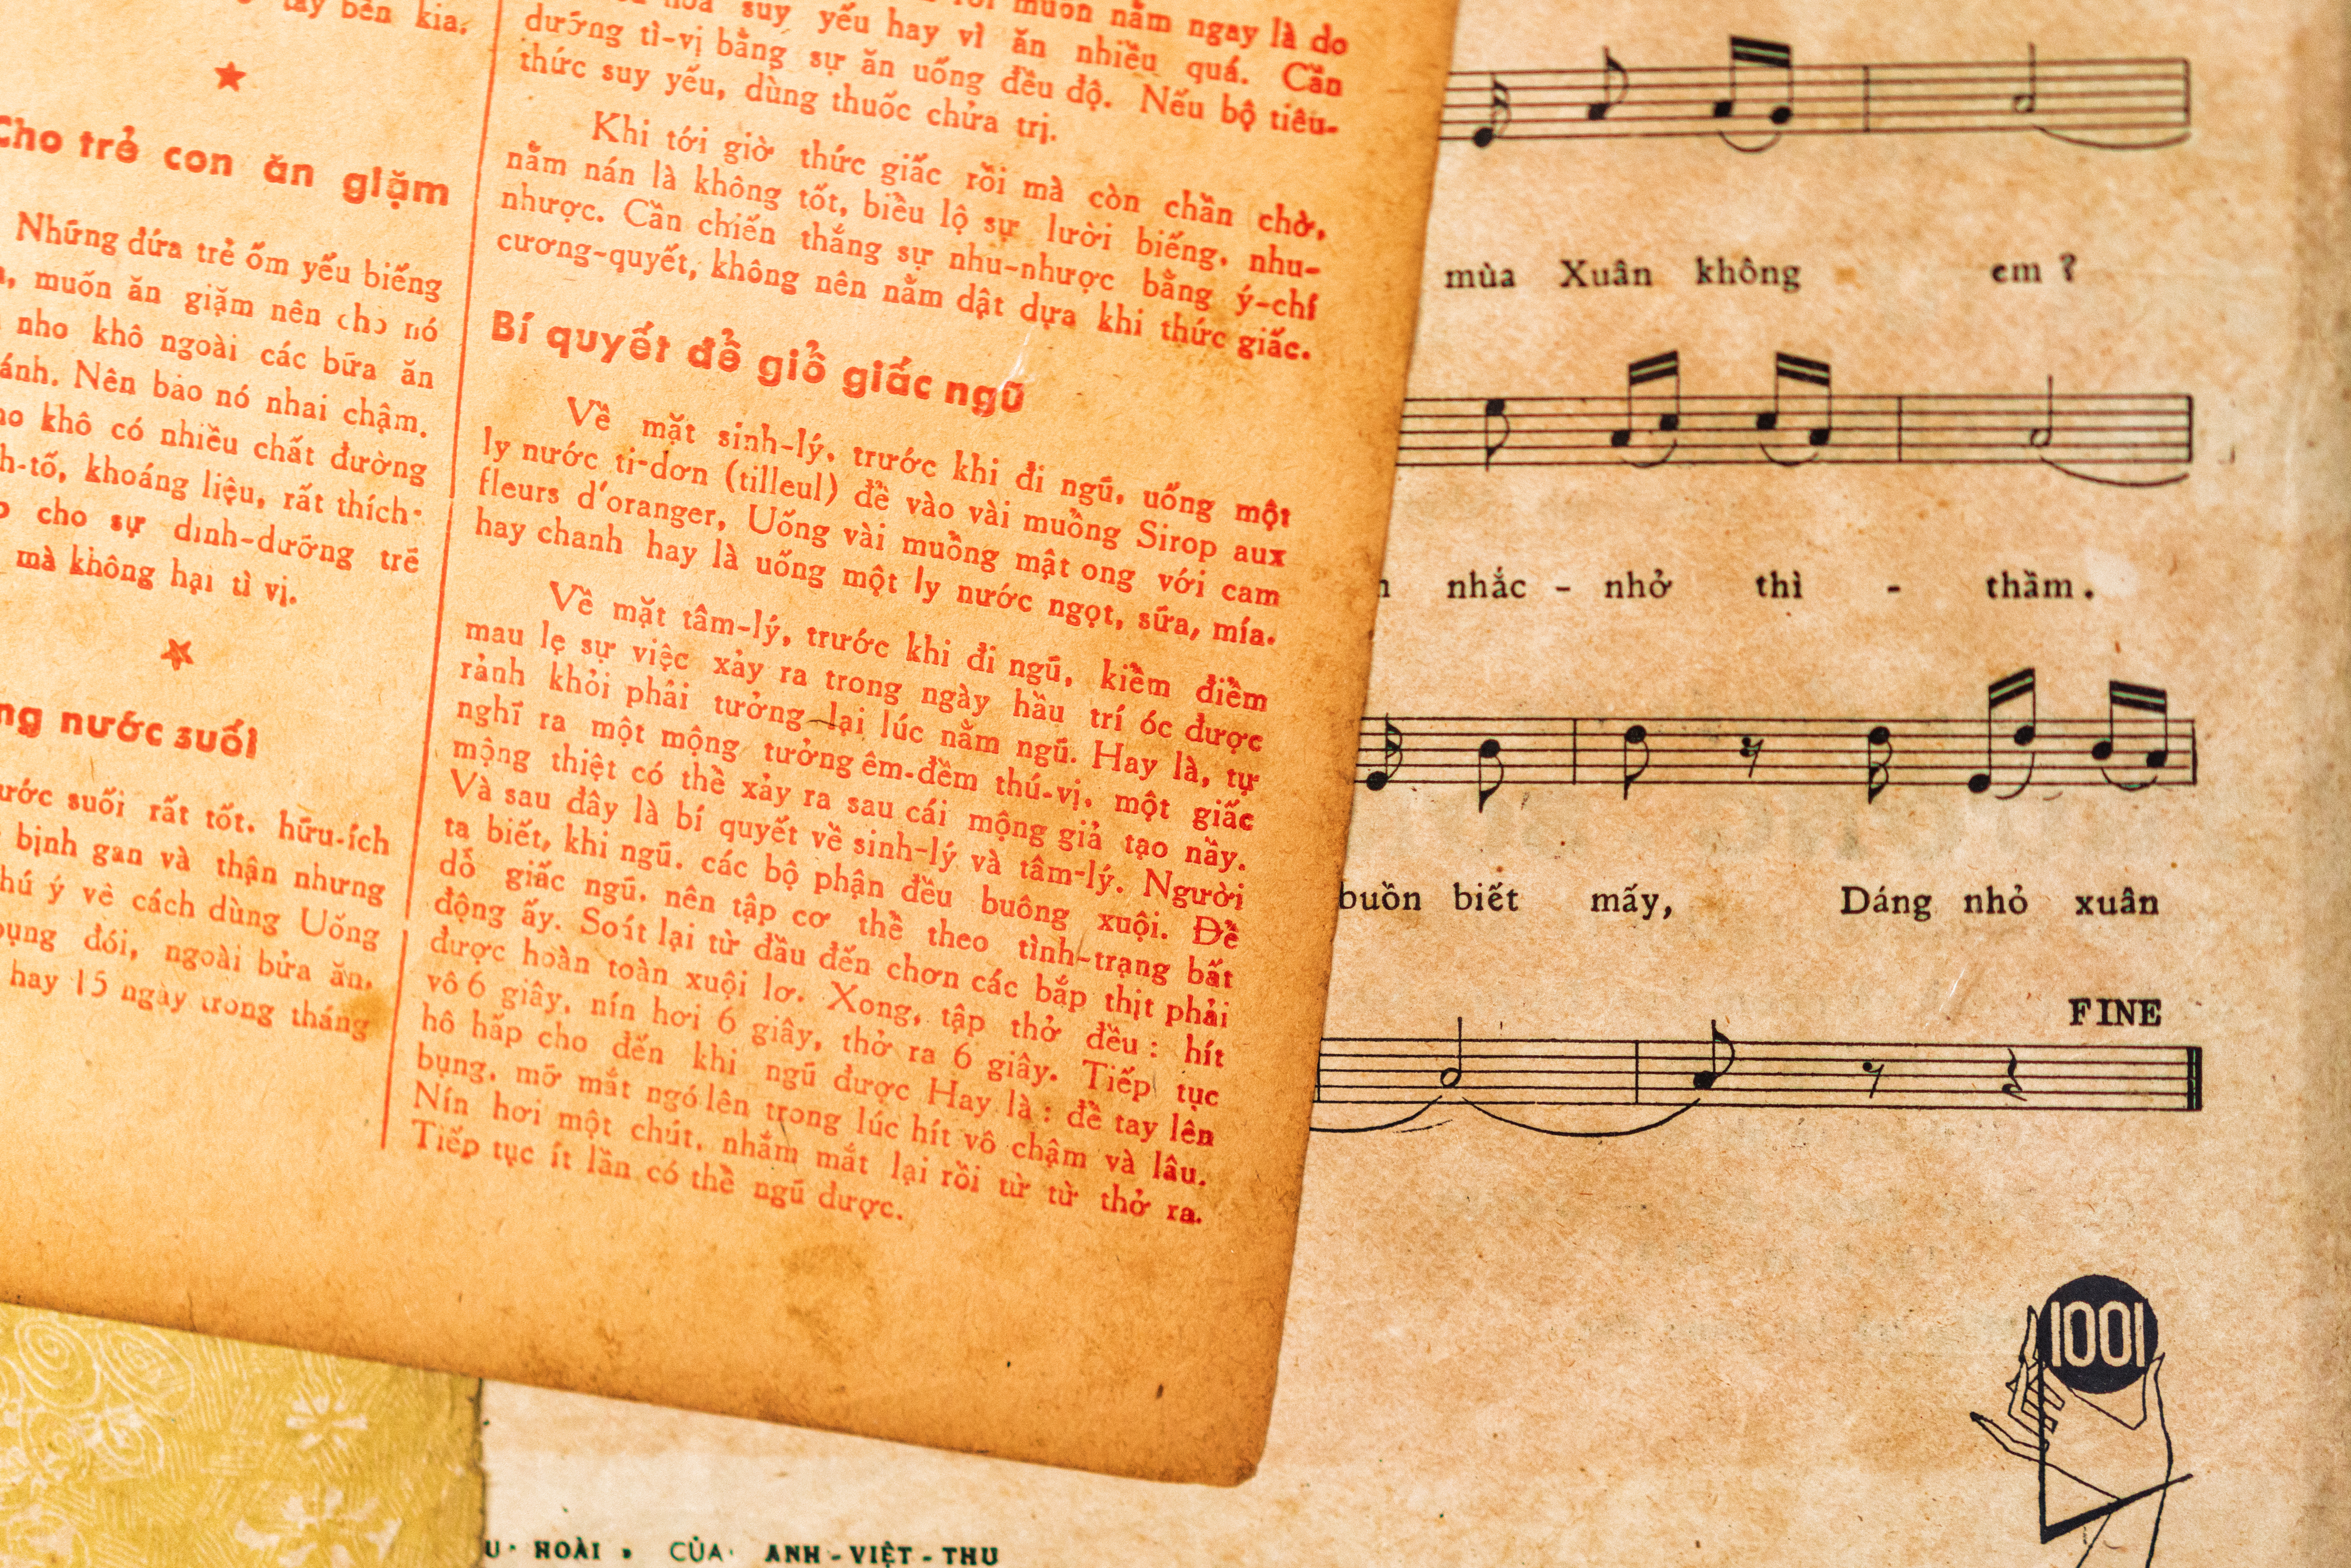 tay bên kia.
★
Cho trẻ con ăn giặm
Những đứa trẻ ốm yếu biếng
muốn ăn giặm nên cho nó
nho khô ngoài các bữa ăn
ánh. Nên bảo nó nhai chậm.
khô có nhiều chất đường
h-tố, khoáng liệu, rất thích-
cho sự dinh-dưỡng trẻ
mà không hại tì vị.
★
ng nước suối
ước suối rất tốt. hữu-ích
bịnh gan và thận nhưng
hú ý về cách dùng Uống
bụng đói, ngoài bửa ăn,
hay 15 ngày trong tháng
muốn nằm ngay là do
suy yếu hay vì ăn nhiều quá. Cần
dưỡng tì-vị bằng sự ăn uống đều độ. Nếu bộ tiêu-
thức suy yếu, dùng thuốc chửa trị.
Khi tới giờ thức giấc rồi mà còn chần chờ,
nằm nán là không tốt, biểu lộ sự lười biếng, nhu-
nhược. Cần chiến thắng sự nhu-nhược bằng ý-chí
cương-quyết, không nên nằm dật dựa khi thức giấc.
Bí quyết để giỗ giấc ngũ
Về mặt sinh-lý, trước khi đi ngũ, uống một
ly nước ti-dơn (tilleul) để vào vài muỗng Sirop aux
fleurs d'oranger, Uống vài muỗng mật ong với cam
hay chanh hay là uống một ly nước ngọt, sữa, mía.
Về mặt tâm-lý, trước khi đi ngũ, kiểm điểm
mau lẹ sự việc xảy ra trong ngày hầu trí óc được
rảnh khỏi phải tưởng lại lúc nằm ngũ. Hay là, tự
nghĩ ra một mộng tưởng êm-đềm thú-vị, một giấc
mộng thiệt có thể xảy ra sau cái mộng giả tạo nầy.
Và sau đây là bí quyết về sinh-lý và tâm-lý. Người
ta biết, khi ngũ. các bộ phận đều buông xuội. Để
dỗ giấc ngũ. nên tập cơ thể theo tình-trạng bất
động ấy. Soát lại từ đầu đến chơn các bắp thịt phải
được hoàn toàn xuội lơ. Xong, tập thở đều : hít
vô 6 giây, nín hơi 6 giây, thở ra 6 giây. Tiếp tục
hô hấp cho đến khi ngũ được Hay là : để tay lên
bụng, mở mắt ngó lên trong lúc hít vô chậm và lâu.
Nín hơi một chút. nhắm mắt lại rồi từ từ thở ra.
Tiếp tục ít lần có thể ngũ được.
mùa Xuân không em ?
nhắc - nhở thì - thầm.
buồn biết mấy, Dáng nhỏ xuân
FINE
1001
HOÀI » CỦA ANH-VIỆT-THU